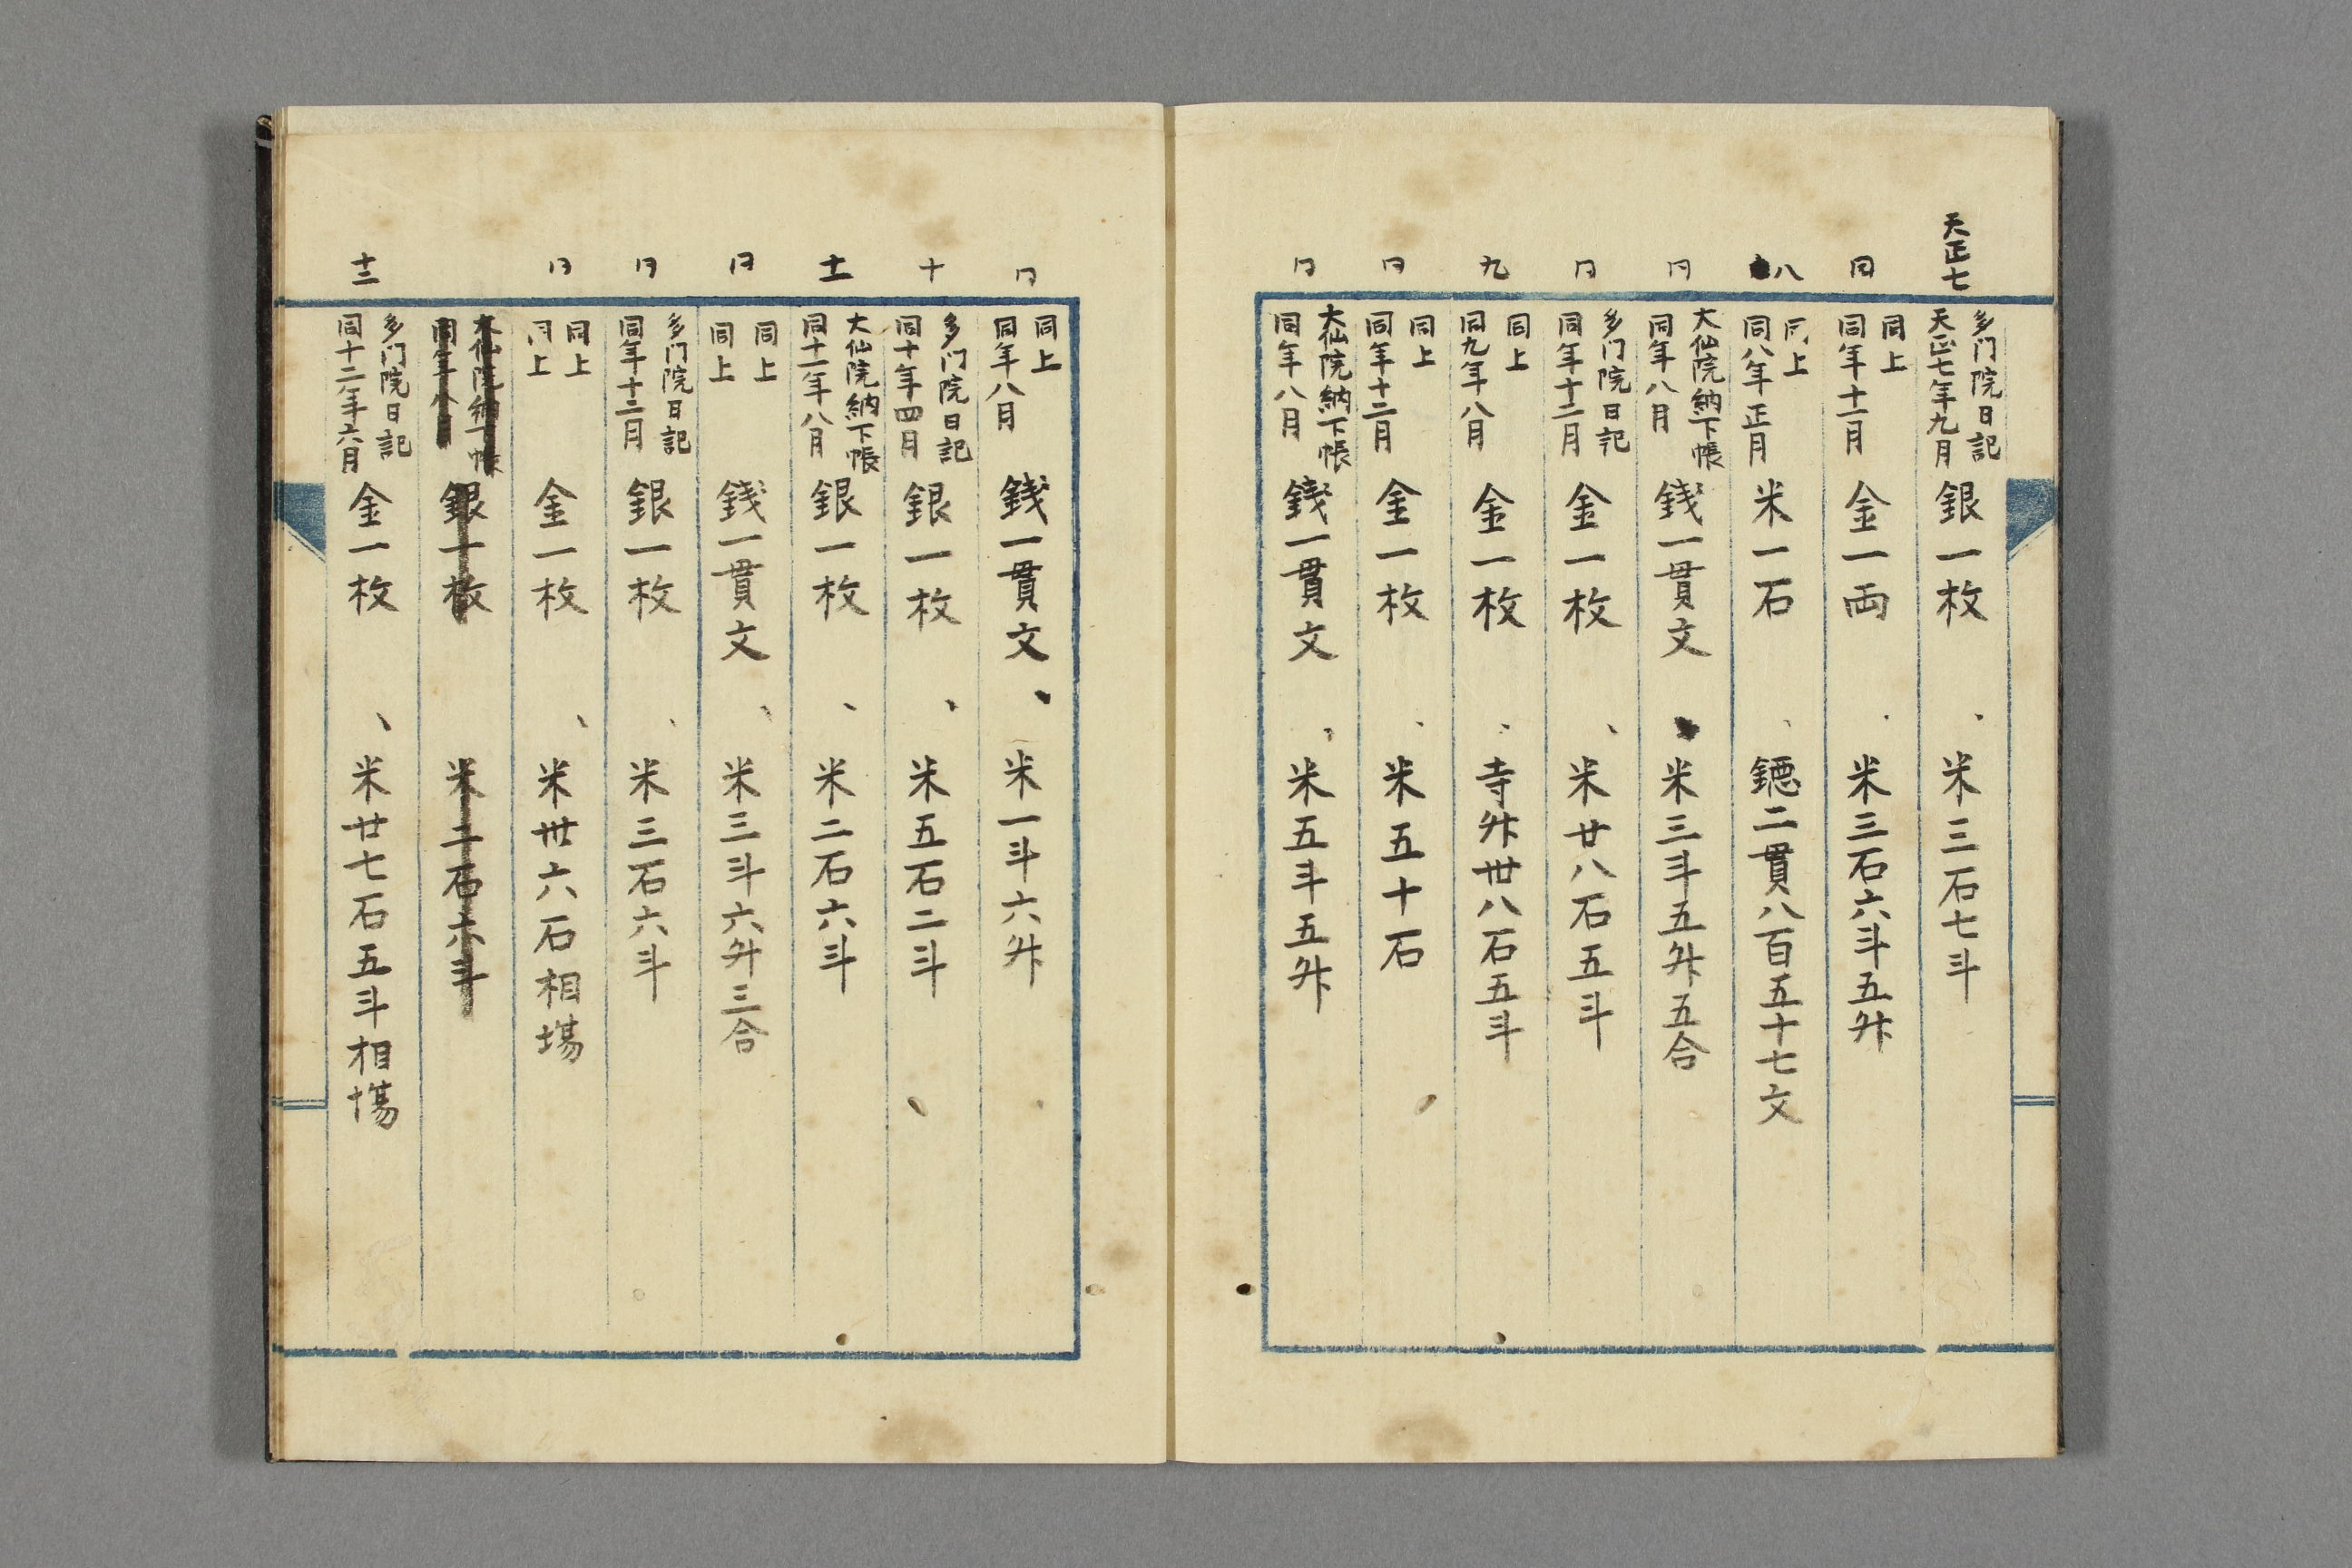 天正七
多门院日記
天正七年九月
銀一枚 、米三石七斗
同
同上
同年十一月
金一両 、米三石六斗五舛
八
同上
同八年正月
米一石 、鐚二貫八百五十七文
同
大仙院納下帳
同年八月
銭一貫文 、米三斗五舛五合
同
多门院日記
同年十二月
金一枚 、米廿八石五斗
九
同上
同九年八月
金一枚 、寺舛卅八石五斗
同
同上
同年十二月
金一枚 、米五十石
同
大仙院納下帳
同年八月
銭一貫文 、米五斗五舛
同
同上
同年八月
銭一貫文、 米一斗六舛
十
多门院日記
同十年四月
銀一枚 、米五石二斗
十一
大仙院納下帳
同十一年八月
銀一枚 、米二石六斗
同
同上
同上
銭一貫文 、米三斗六舛三合
同
多门院日記
同年十二月
銀一枚 、米三石六斗
同
同上
同上
金一枚 、米卅六石相場
大仙院納下帳
同年八月
銀一枚 米二石六斗
十二
多门院日記
同十二年六月
金一枚 、米廿七石五斗相場